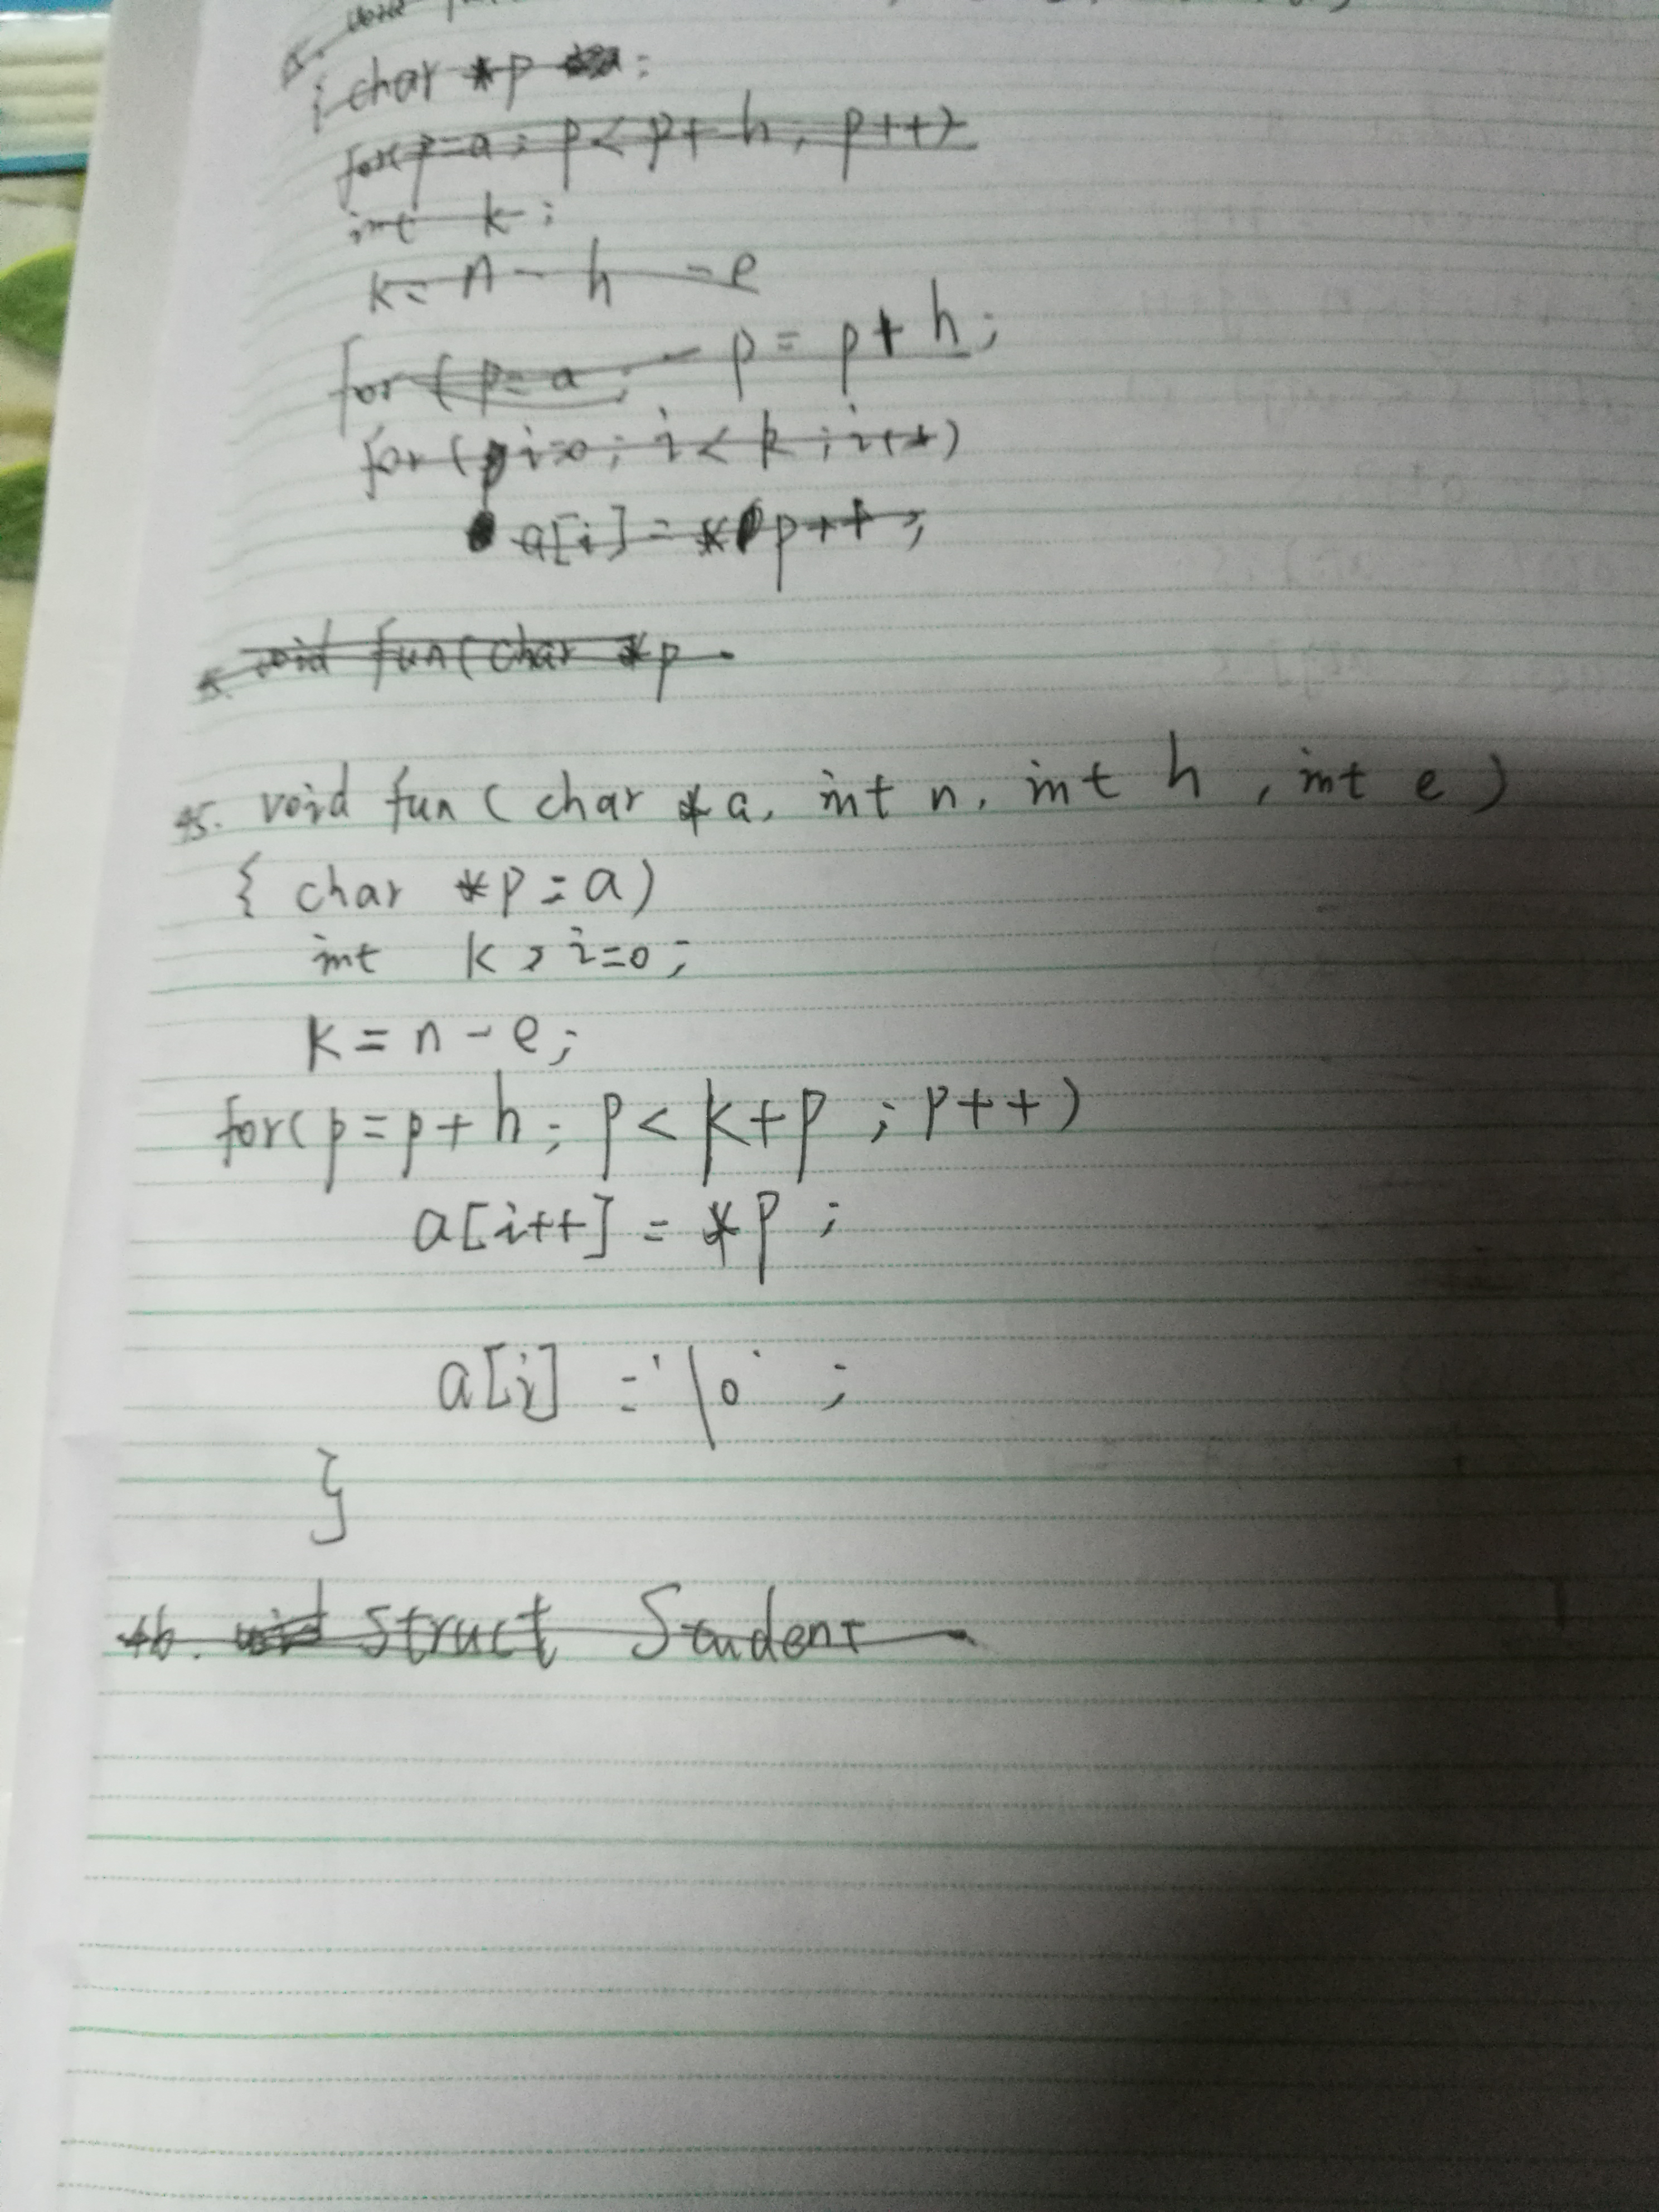 { char *p ;
for(p=a; p<p+h; p++)
int k;
k=n-h-e
for(p=a; p=p+h;
for(i=0; i<k; i++)
a[i]=*p++;
void fun(char *p
45. void fun(char *a, int n, int h, int e)
{ char *p=a)
int k,i=0;
k=n-e;
for(p=p+h; p<k+p; p++)
a[i++]=*p;
a[i]='\0';
}
46. void struct Student